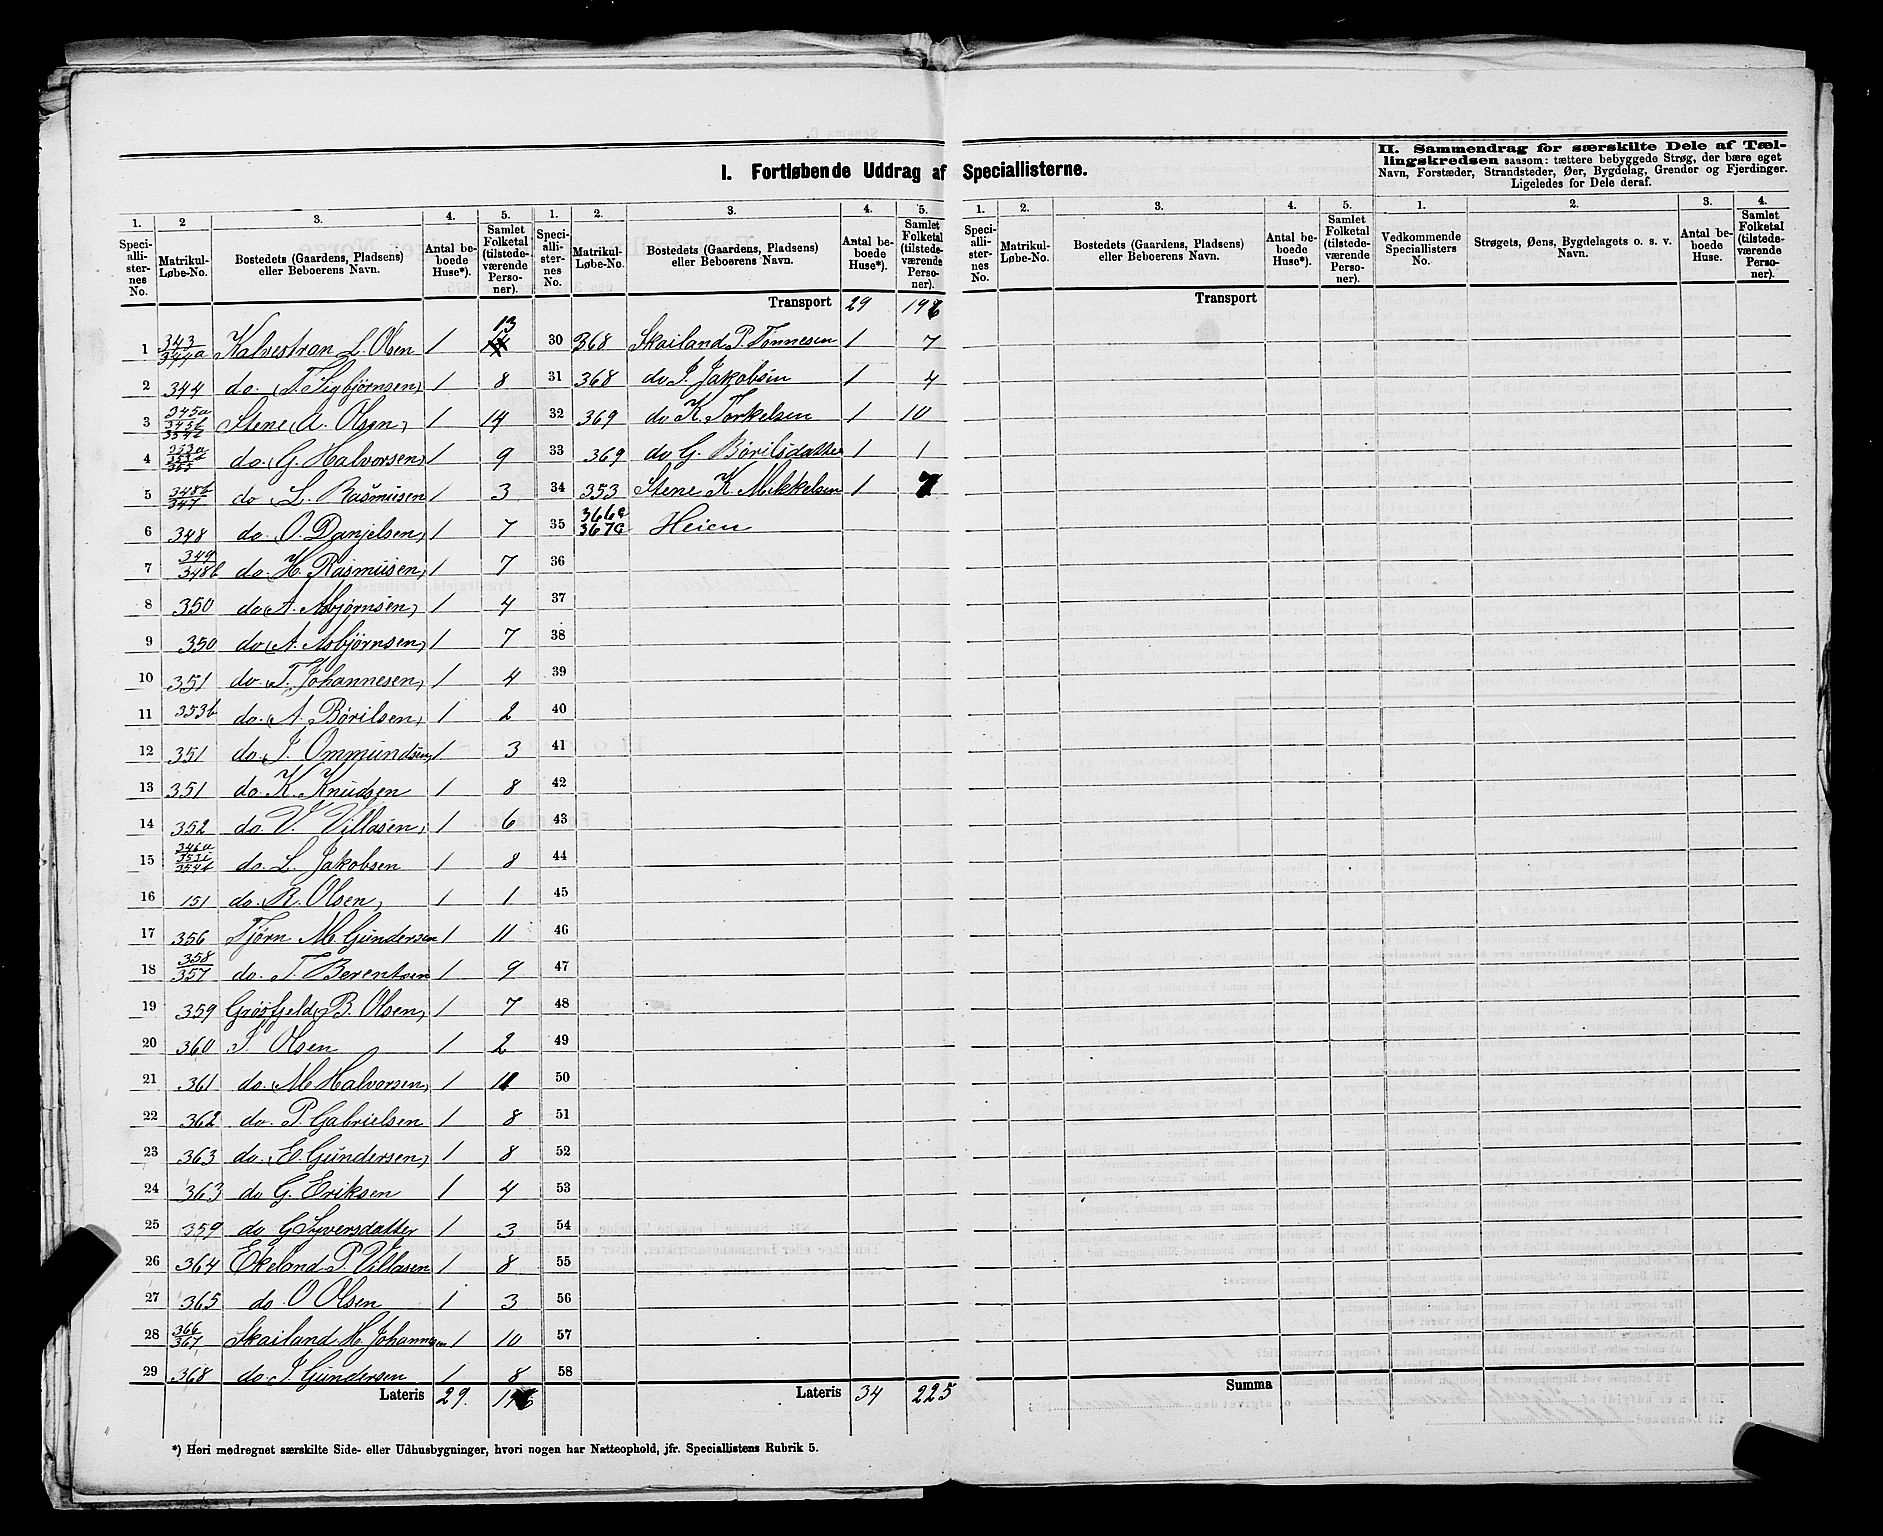 I. Fortløbende Uddrag af Speciallisterne.
II. Sammendrag for særskilte Dele af Tællingskredsen saasom: tættere bebyggede Strøg, der bære eget Navn, Forstæder, Strandsteder, Øer, Bygdelag, Grender og Fjerdinger. Ligeledes for Dele deraf.
1. 2 3. 4. 5. 1. 2. 3. 4. 5. 1. 2. 3. 4. 5. 1. 2. 3. 4.
Speciallisternes No. Matrikul-Løbe-No. Bostedets (Gaardens, Pladsens) eller Beboerens Navn. Antal beboede Huse*). Samlet Folketal (tilstedeværende Personer).
Speciallisternes No. Matrikul-Løbe-No. Bostedets (Gaardens, Pladsens) eller Beboerens Navn. Antal beboede Huse*). Samlet Folketal (tilstedeværende Personer).
Speciallisternes No. Matrikul-Løbe-No. Bostedets (Gaardens, Pladsens) eller Beboerens Navn. Antal beboede Huse*). Samlet Folketal (tilstedeværende Personer).
Vedkommende Speciallisters No. Strøgets, Øens, Bygdelagets o. s. v. Navn. Antal beboede Huse. Samlet Folketal (tilstedeværende Personer).
Transport 29 196
Transport
1 343/344a Kalvestran L. Olsen 1 13
2 344 do. (T. Sigbjørnsen) 1 8
3 345a/345b/354b Stene (A. Olsen) 1 14
4 353a/365 do. (G. Halvorsen) 1 9
5 348b/347 do L. Rasmusen 1 3
6 348 do. (O. Danjelsen) 1 7
7 349/348b do. (H. Rasmusen) 1 7
8 350 do (A. Asbjørnsen) 1 4
9 350 do (A. Asbjørnsen) 1 7
10 351 do. (T. Johannesen) 1 4
11 353b do. (A. Børilsen) 1 2
12 351 do. J. Ommundsen 1 3
13 351 do. K. Knudsen 1 8
14 352 do. V. Villasen) 1 6
15 346a/353i/354b do. L. Jakobsen 1 8
16 151 do. R. Olsen) 1 1
17 356 Tjørn M. Gundersen 1 11
18 358/357 do. T. Berentsen 1 9
19 359 Grøsfjeld (B. Olsen) 1 7
20 360 T. Olsen 1 2
21 361 do. (M. Halvorsen) 1 11
22 362 do. P. Gabrielsen 1 8
23 363 do. (E. Gundersen) 1 8
24 363 do G. Eriksen 1 4
25 359 do G Syversdatter 1 3
26 364 Ekeland P. Villasen 1 8
27 365 do. O Olsen 1 3
28 366/367 Skailand H. Johannesen 1 10
29 368 do. J. Gundersen 1 8
Lateris 29. 196
30 368 Skailand P. Tønnesen 1 7
31 368 do J. Jakobsen 1 4
32 369 do K. Torkelsen 1 10
33 369 do G. Børilsdatter 1 1
34 353 Stene K. Mikkelsen 1 7
35 366c/367c Heien
36
37
38
39
40
41
42
43
44
45
46
47
48
49
50
51
52
53
54
55
56
57
58
Lateris 34 225
Summa
*) Heri medregnet særskilte Side- eller Udhusbygninger, hvori nogen har Natteophold, jfr. Speciallistens Rubrik 5.